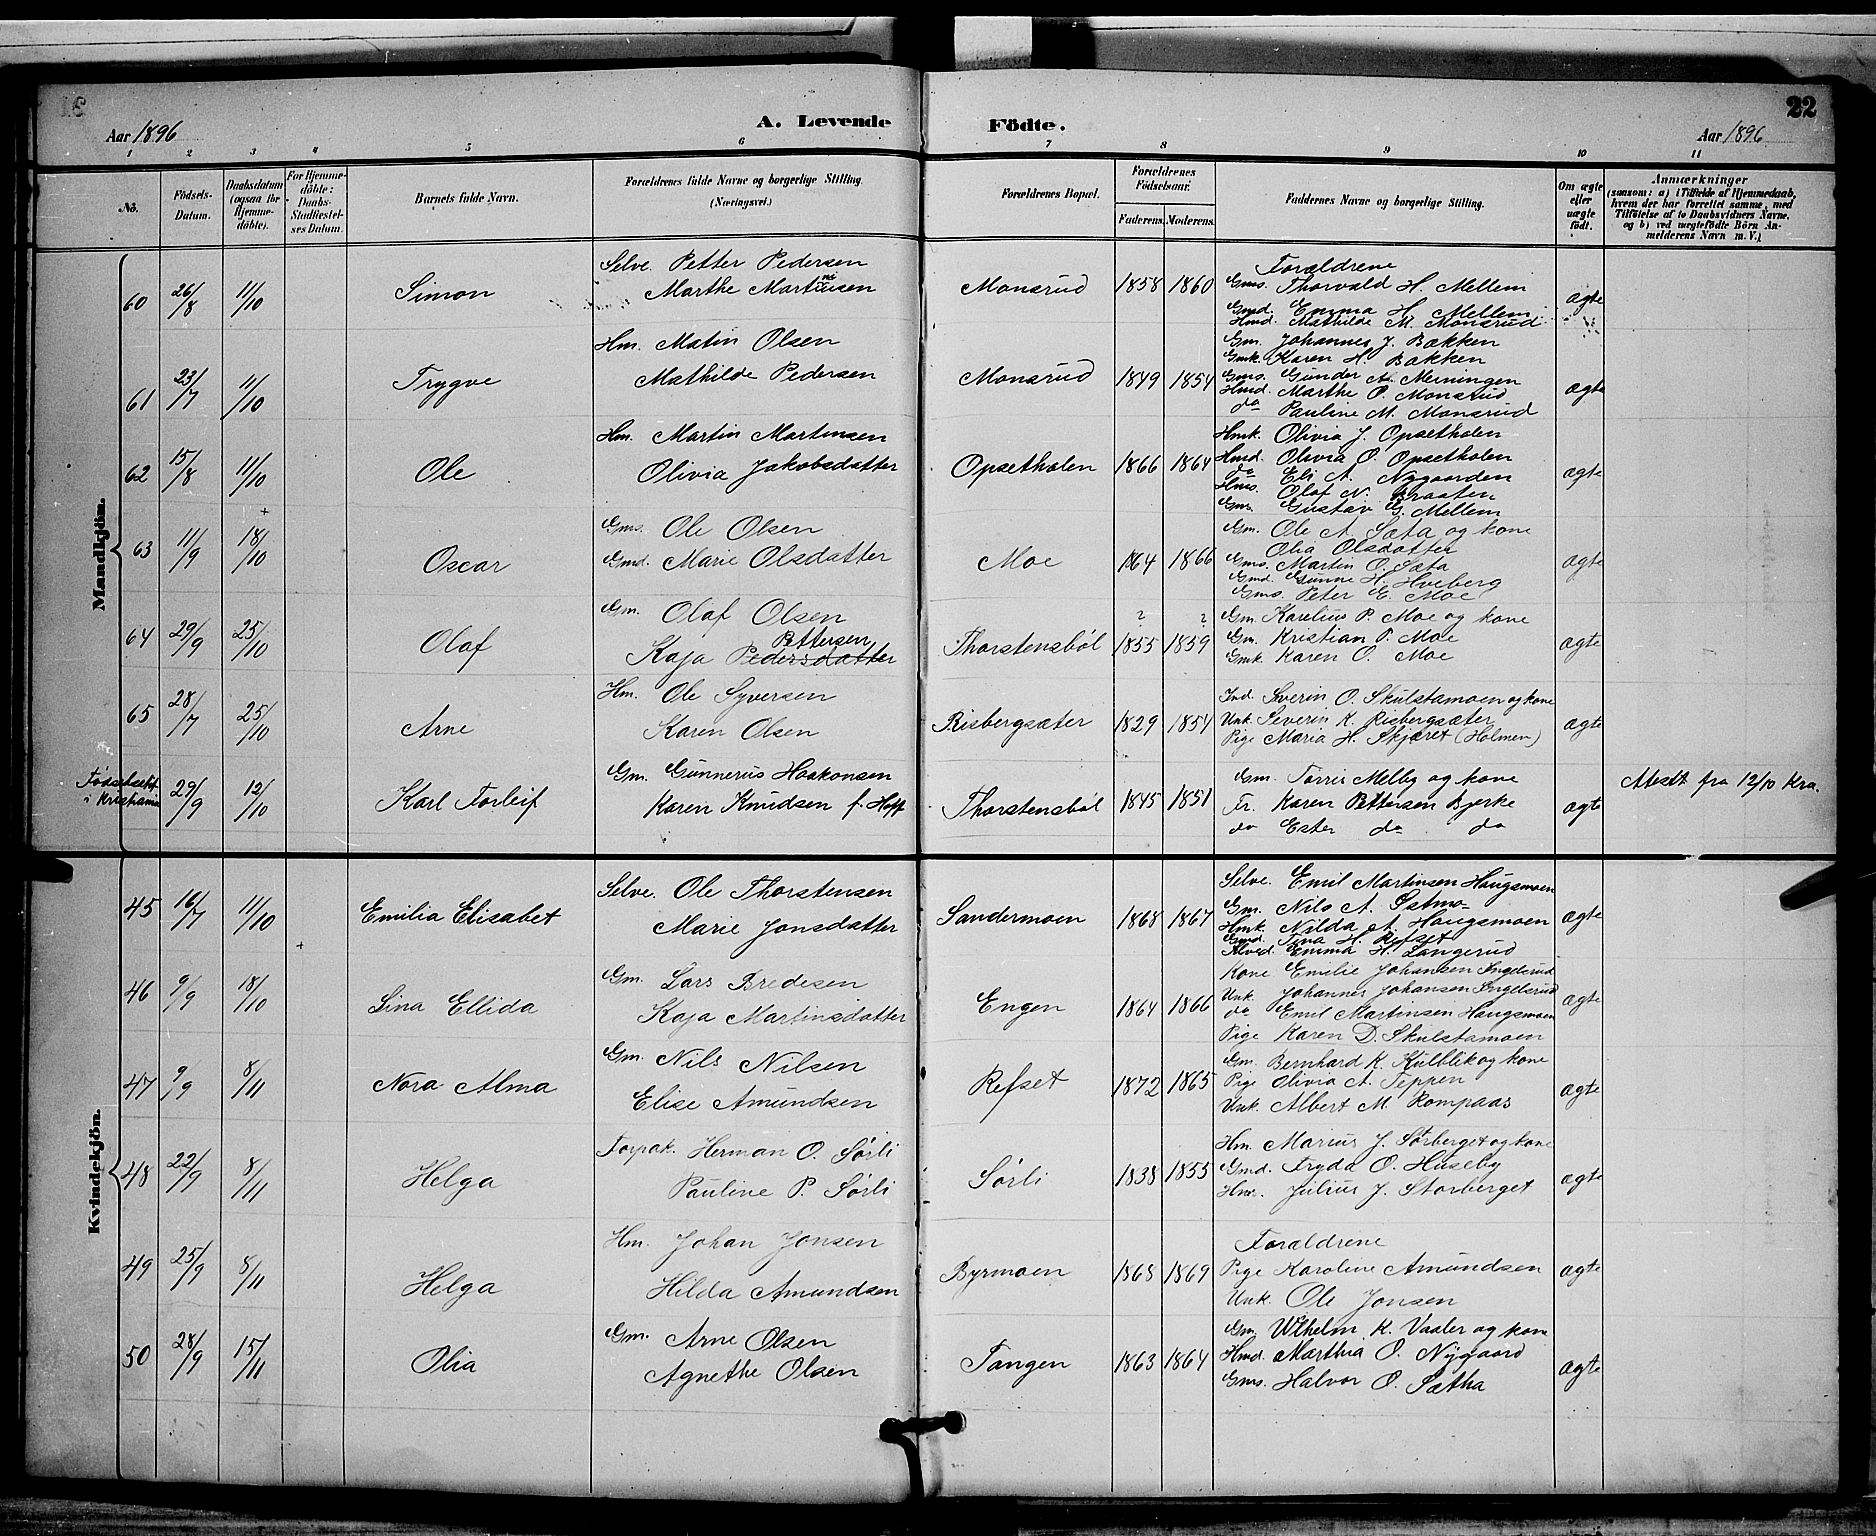 Aar 1896
A. Levende Födte.
22
Aar 1896
1 2 3 4 5 6 7 8 9 10 11
No.
Fødsels-Datum.
Daabsdatum (ogsaa for Hjemme-døbte).
For Hjemme-døbte: Daabs-Stadfæstel-ses Datum.
Barnets fulde Navn.
Forældrenes fulde Navne og borgerlige Stilling. (Næringsvei.)
Forældrenes Bopæl.
Forældrenes Födselsaar.
Faderens. Moderens.
Faddernes Navne og borgerlige Stilling.
Om ægte eller uægte født.
Anmærkninger
(saasom: a) i Tilfælde af Hjemmedaab, hvem der har forrettet samme, med Tilföielse af to Daabsvidners Navne, og b) ved uægtefödte Börn An-melderens Navn m. V.)
Mandkjön.
60 26/8 11/10 Simon
Selve. Petter Pedersen
Marthe Martinsen
Monsrud 1858 1860
Forældrene
Gms. Thorvald H. Mellem
Gmd. Emma H. Mellem
Hmd. Mathilde M. Monsrud
ægte
61 23/7 11/10 Trygve
Hm. Matin Olsen
Mathilde Pedersen
Monsrud 1849 1854
Gm. Johannes J. Bakken
Gmk. Karen H. Bakken
Gms. Gunder A. Menningen
Hmd. Marthe O. Monsrud
do Pauline M. Monsrud
ægte
62 15/8 11/10 Ole
Hm. Martin Martinsen
Olivia Jakobsdatter
Opsetholen 1866 1864
Hmk. Olivia J. Opsetholen
Hmd. Olivia O. Opsetholen
do Eli A. Nygaarden
Hms. Olaf N. Braaten
Gms. Gustav G. Mellem
ægte
63 11/9 18/10 Oscar
Gms. Ole Olsen
Gmd. Marie Olsdatter
Moe 1864 1866
Gm. Ole A. Sata og kone
Olia Olsdatter
Gms. Martin O. Sata
Gmd. Gunne H. Hveberg
Gms. Peter E. Moe
ægte
64 29/9 25/10 Olaf
Gm. Olaf Olsen
Pettersen
Kaja Pedersdatter
Thorstensböl ? 1855 ? 1859
Gm. Karelius P. Moe og kone
Gm. Kristian P. Moe
Gmk. Karen O. Moe
ægte
65 28/7 25/10 Arne
Hm. Ole Syversen
Karen Olsen
Risbergsæter 1829 1854
Ind. Sverin O. Skulstamoen og kone
Unk. Severin K. Risbergsæter
Pige Maria H. Skjæret (Holmen)
ægte
i Kristiania 29/9 12/10 Karl Torleif
Gm. Gunnerus Haakonsen
Karen Knudsen f. Hoff
Thorstensböl 1845 1851
Gm. Torris Melby og kone
Fr. Karen Pettersen Bjerke
do Ester do do
ægte
Attest fra 12/10 Kra.
Kvindekjön.
45 16/7 11/10 Emilia Elisabet
Selve. Ole Thorstensen
Marie Jonsdatter
Sandermoen 1868 1867
Selve. Emil Martinsen Haugsmoen
Gm. Nils A. Sætmo
Hmk. Nilda A. Haugsmoen
Gmd. Tina H. Refset
Emma H. Langerud
ægte
46 9/9 18/10 Lina Ellida
Gm. Lars Bredesen
Kaja Martinsdatter
Engen 1864 1866
Kone Emilie Johansen Ingelsrud
Unk. Johannes Johansen Ingelsrud
do Emil Martinsen Haugsmoen
Pige Karen D. Skulstamoen
ægte
47 9/9 8/11 Nora Alma
Gm. Nils Nilsen
Elise Amundsen
Refset 1872 1865
Gm. Bernhard K. Kulblik og kone
Pige Olivia A. Teppen
Unk. Albert M. Rompaas
ægte
48 22/9 8/11 Helga
Forpak. Herman O. Sørli
Pauline P. Sørli
Sørli 1838 1855
Hm. Marius J. Storberget og kone
Gmd. Fryda O. Huseby
Hms. Julius J. Storberget
ægte
49 25/9 8/11 Helga
Hm. Johan Jonsen
Hilda Amundsen
Byrmoen 1868 1869
Forældrene
Pige Karoline Amundsen
Unk. Ole Jonsen
ægte
50 28/9 15/11 Olia
Gm. Arne Olsen
Agnethe Olsen
Tangen 1863 1864
Gm. Wilhelm K. Vaaler og kone
Hmd. Marthia O. Nygaard
Gms. Halvor O. Sætha
ægte